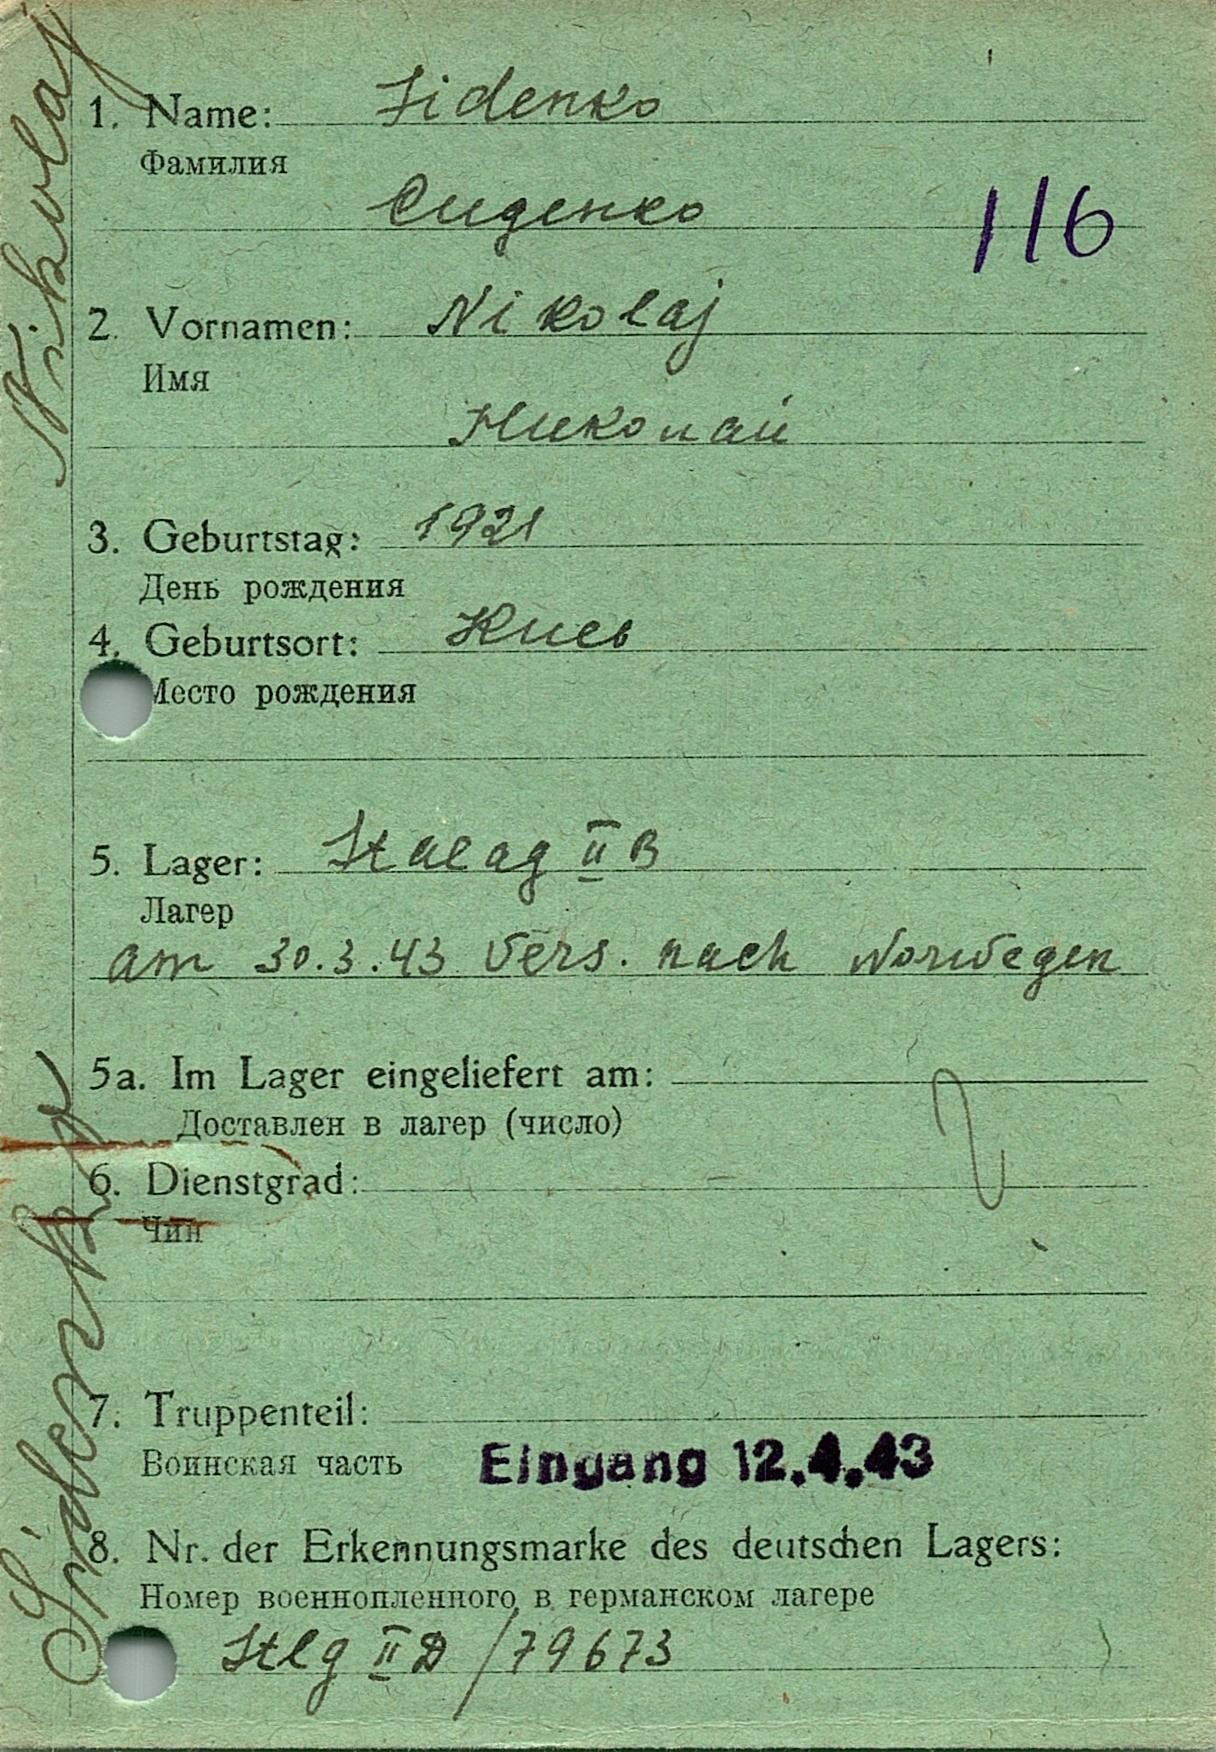 1. Name: Sidenko
Фамилия
Сиденко
116
2. Vornamen: Nikolaj
Имя
Николай
3. Geburtstag: 1921
День рождения
4. Geburtsort: Киев
Место рождения
5. Lager: Stalag II B
Лагер
am 30.3.43 Vers. nach Norwegen
5a. Im Lager eingeliefert am:
Доставлен в лагер (число)
6. Dienstgrad:
Чин
7. Truppenteil:
Воинская часть
Eingang 12.4.43
8. Nr. der Erkennungsmarke des deutschen Lagers:
Номер военнопленного в германском лагере
Stlg II D /79673
Sidenko
Nikolaj